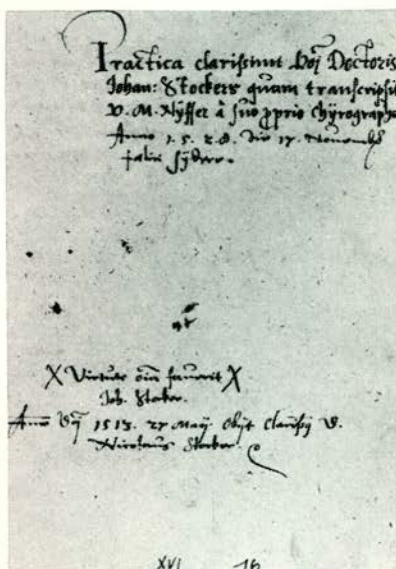 Practica clarissimi Doctoris
Johan: Stockers quam transcripsit
D. M. Nyffer à suo proprio Chyrographo
Anno 1.5.2.8. die 17. Novemb
felici sydere.
X Virtute favent X
Joh. Stocker.
Anno 1513. 27 Maij Obijt Clariss D.
Nicolaus Stocker.
XVI 16